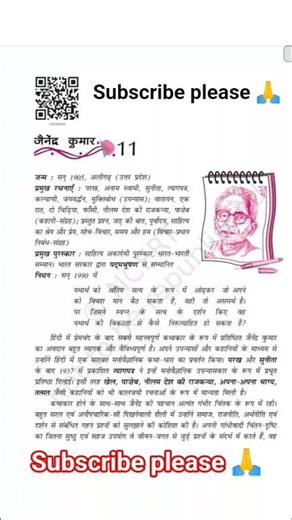 Subscribe please 🙏
जैनेंद्र कुमार
11
जन्म : सन् 1905, अलीगढ़ (उत्तर प्रदेश)
प्रमुख रचनाएँ : परख, अनाम स्वामी, सुनीता, त्यागपत्र,
कल्याणी, जयवर्द्धन, मुक्तिबोध (उपन्यास); वातायन, एक
रात, दो चिड़िया, फाँसी, नीलम देश की राजकन्या, पाजेब
(कहानी-संग्रह); प्रस्तुत प्रश्न, जड़ की बात, पूर्वोदय, साहित्य
का श्रेय और प्रेय, सोच-विचार, समय और हम (विचार-प्रधान
निबंध-संग्रह)
प्रमुख पुरस्कार : साहित्य अकादमी पुरस्कार, भारत-भारती
सम्मान। भारत सरकार द्वारा पद्मभूषण से सम्मानित
निधन : सन् 1990 में
यथार्थ को अंतिम सत्य के रूप में ओढ़कर जो अपने
को विवश मान बैठ सकता है, वही तो असमर्थ है।
पर जिसने स्वप्न के सत्य के दर्शन किए वह
यथार्थ की विकटता से कैसे निरुत्साहित हो सकता है?
हिंदी में प्रेमचंद के बाद सबसे महत्त्वपूर्ण कथाकार के रूप में प्रतिष्ठित जैनेंद्र कुमार
का अवदान बहुत व्यापक और वैविध्यपूर्ण है। अपने उपन्यासों और कहानियों के माध्यम से
उन्होंने हिंदी में एक सशक्त मनोवैज्ञानिक कथा-धारा का प्रवर्तन किया। परख और सुनीता
के बाद 1937 में प्रकाशित त्यागपत्र ने इन्हें मनोवैज्ञानिक उपन्यासकार के रूप में प्रभूत
प्रतिष्ठा दिलाई। इसी तरह खेल, पाजेब, नीलम देश की राजकन्या, अपना-अपना भाग्य,
तत्सत जैसी कहानियों को भी कालजयी रचनाओं के रूप में मान्यता मिली है।
कथाकार होने के साथ-साथ जैनेंद्र की पहचान अत्यंत गंभीर चिंतक के रूप में रही।
बहुत सरल एवं अनौपचारिक-सी दिखनेवाली शैली में उन्होंने समाज, राजनीति, अर्थनीति एवं
दर्शन से संबंधित गहन प्रश्नों को सुलझाने की कोशिश की है। अपनी गांधीवादी चिंतन-दृष्टि
का जितना सुष्ठु एवं सहज उपयोग वे जीवन-जगत से जुड़े प्रश्नों के संदर्भ में करते हैं, वह
Subscribe please 🙏